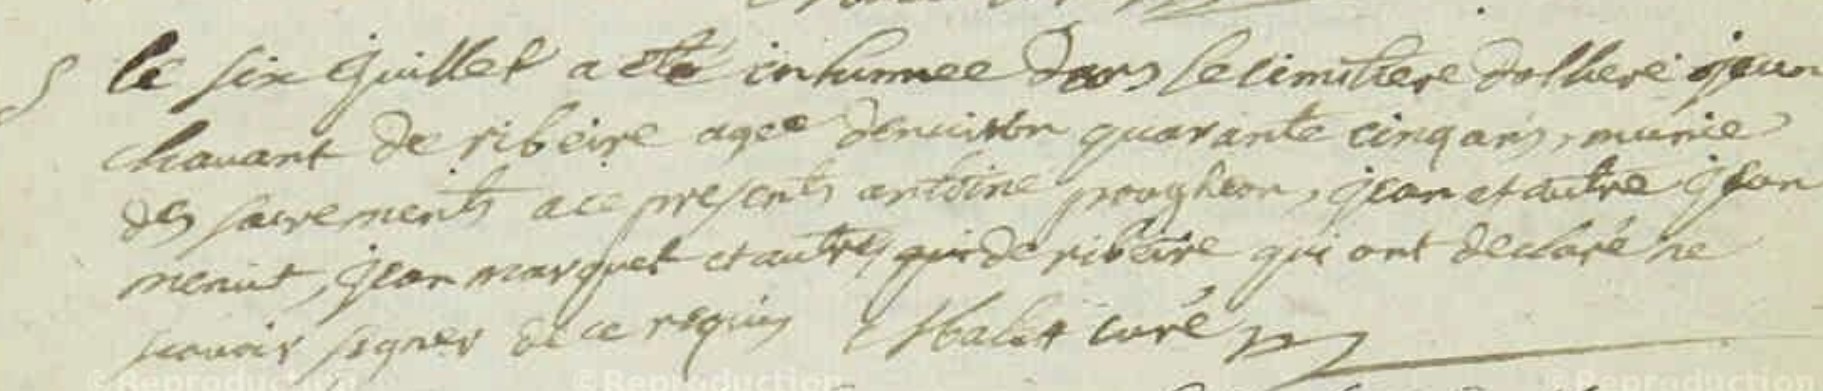 le six juillet a été inhumee dans le cimitiere dolhere jean
chavant de ribeire agee denviron quarante cinq ans, munie
des sacrements a ce presents antoine pougheon, jean et autre jean
menut, jean marquet et autres qui de ribeire qui ont declaré ne
scavoir signer de ce requis Malet curé
©Reproduction ©Reproduction ©Reproduction